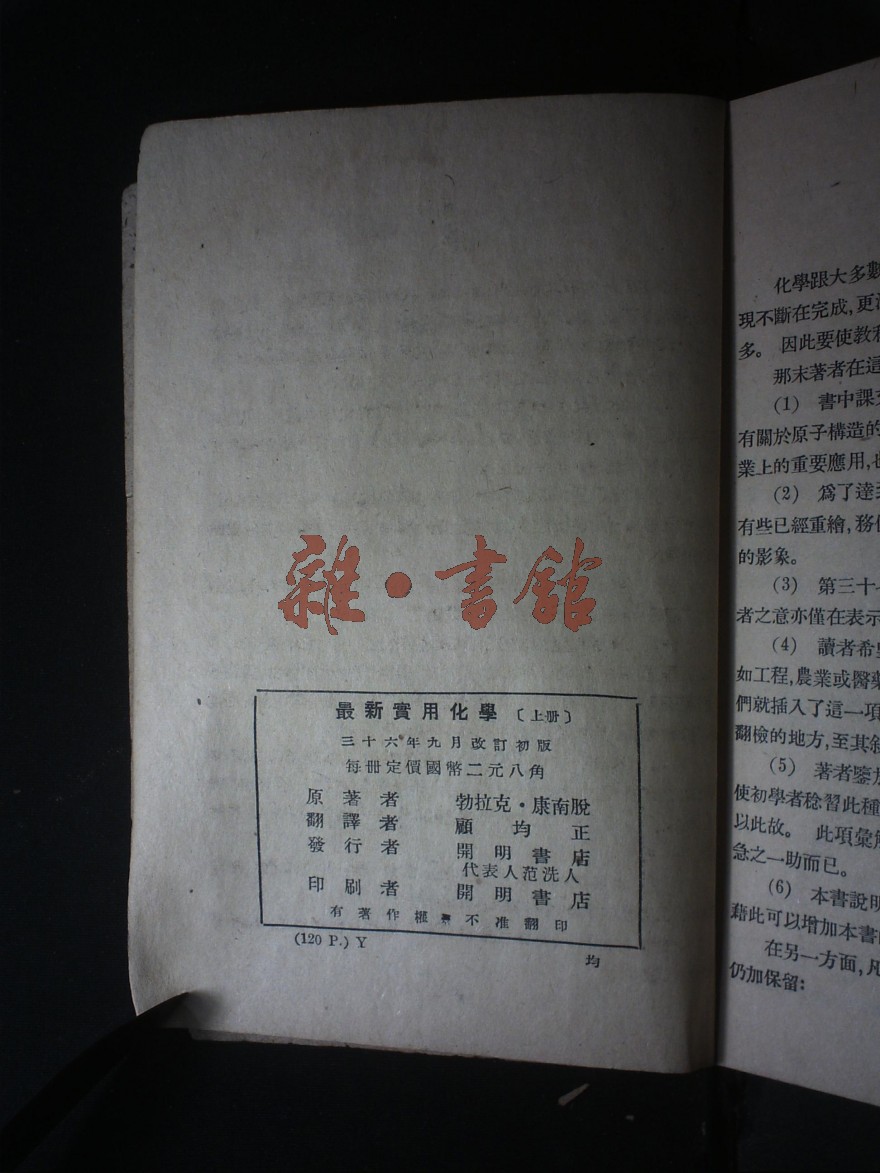 雜•書館
最新實用化學〔上册〕
三十六年九月改訂初版
每册定價國幣二元八角
原著者 勃拉克•康南脫
翻譯者 顧均正
發行者 開明書店
代表人范洗人
印刷者 開明書店
有著作權 不准翻印
(120 P.) Y
均
化學跟大多數
現不斷在完成,更
多。 因此要使教
那末著者在這
(1) 書中課
有關於原子構造的
業上的重要應用,
(2) 爲了達
有些已經重繪,務
的影象。
(3) 第三十
者之意亦僅在表示
(4) 讀者希
如工程,農業或醫藥
們就插入了這一項
翻檢的地方,至其
(5) 著者鑒
使初學者稔習此種
以此故。 此項彙
急之一助而已。
(6) 本書說明
藉此可以增加本書
在另一方面,凡
仍加保留: